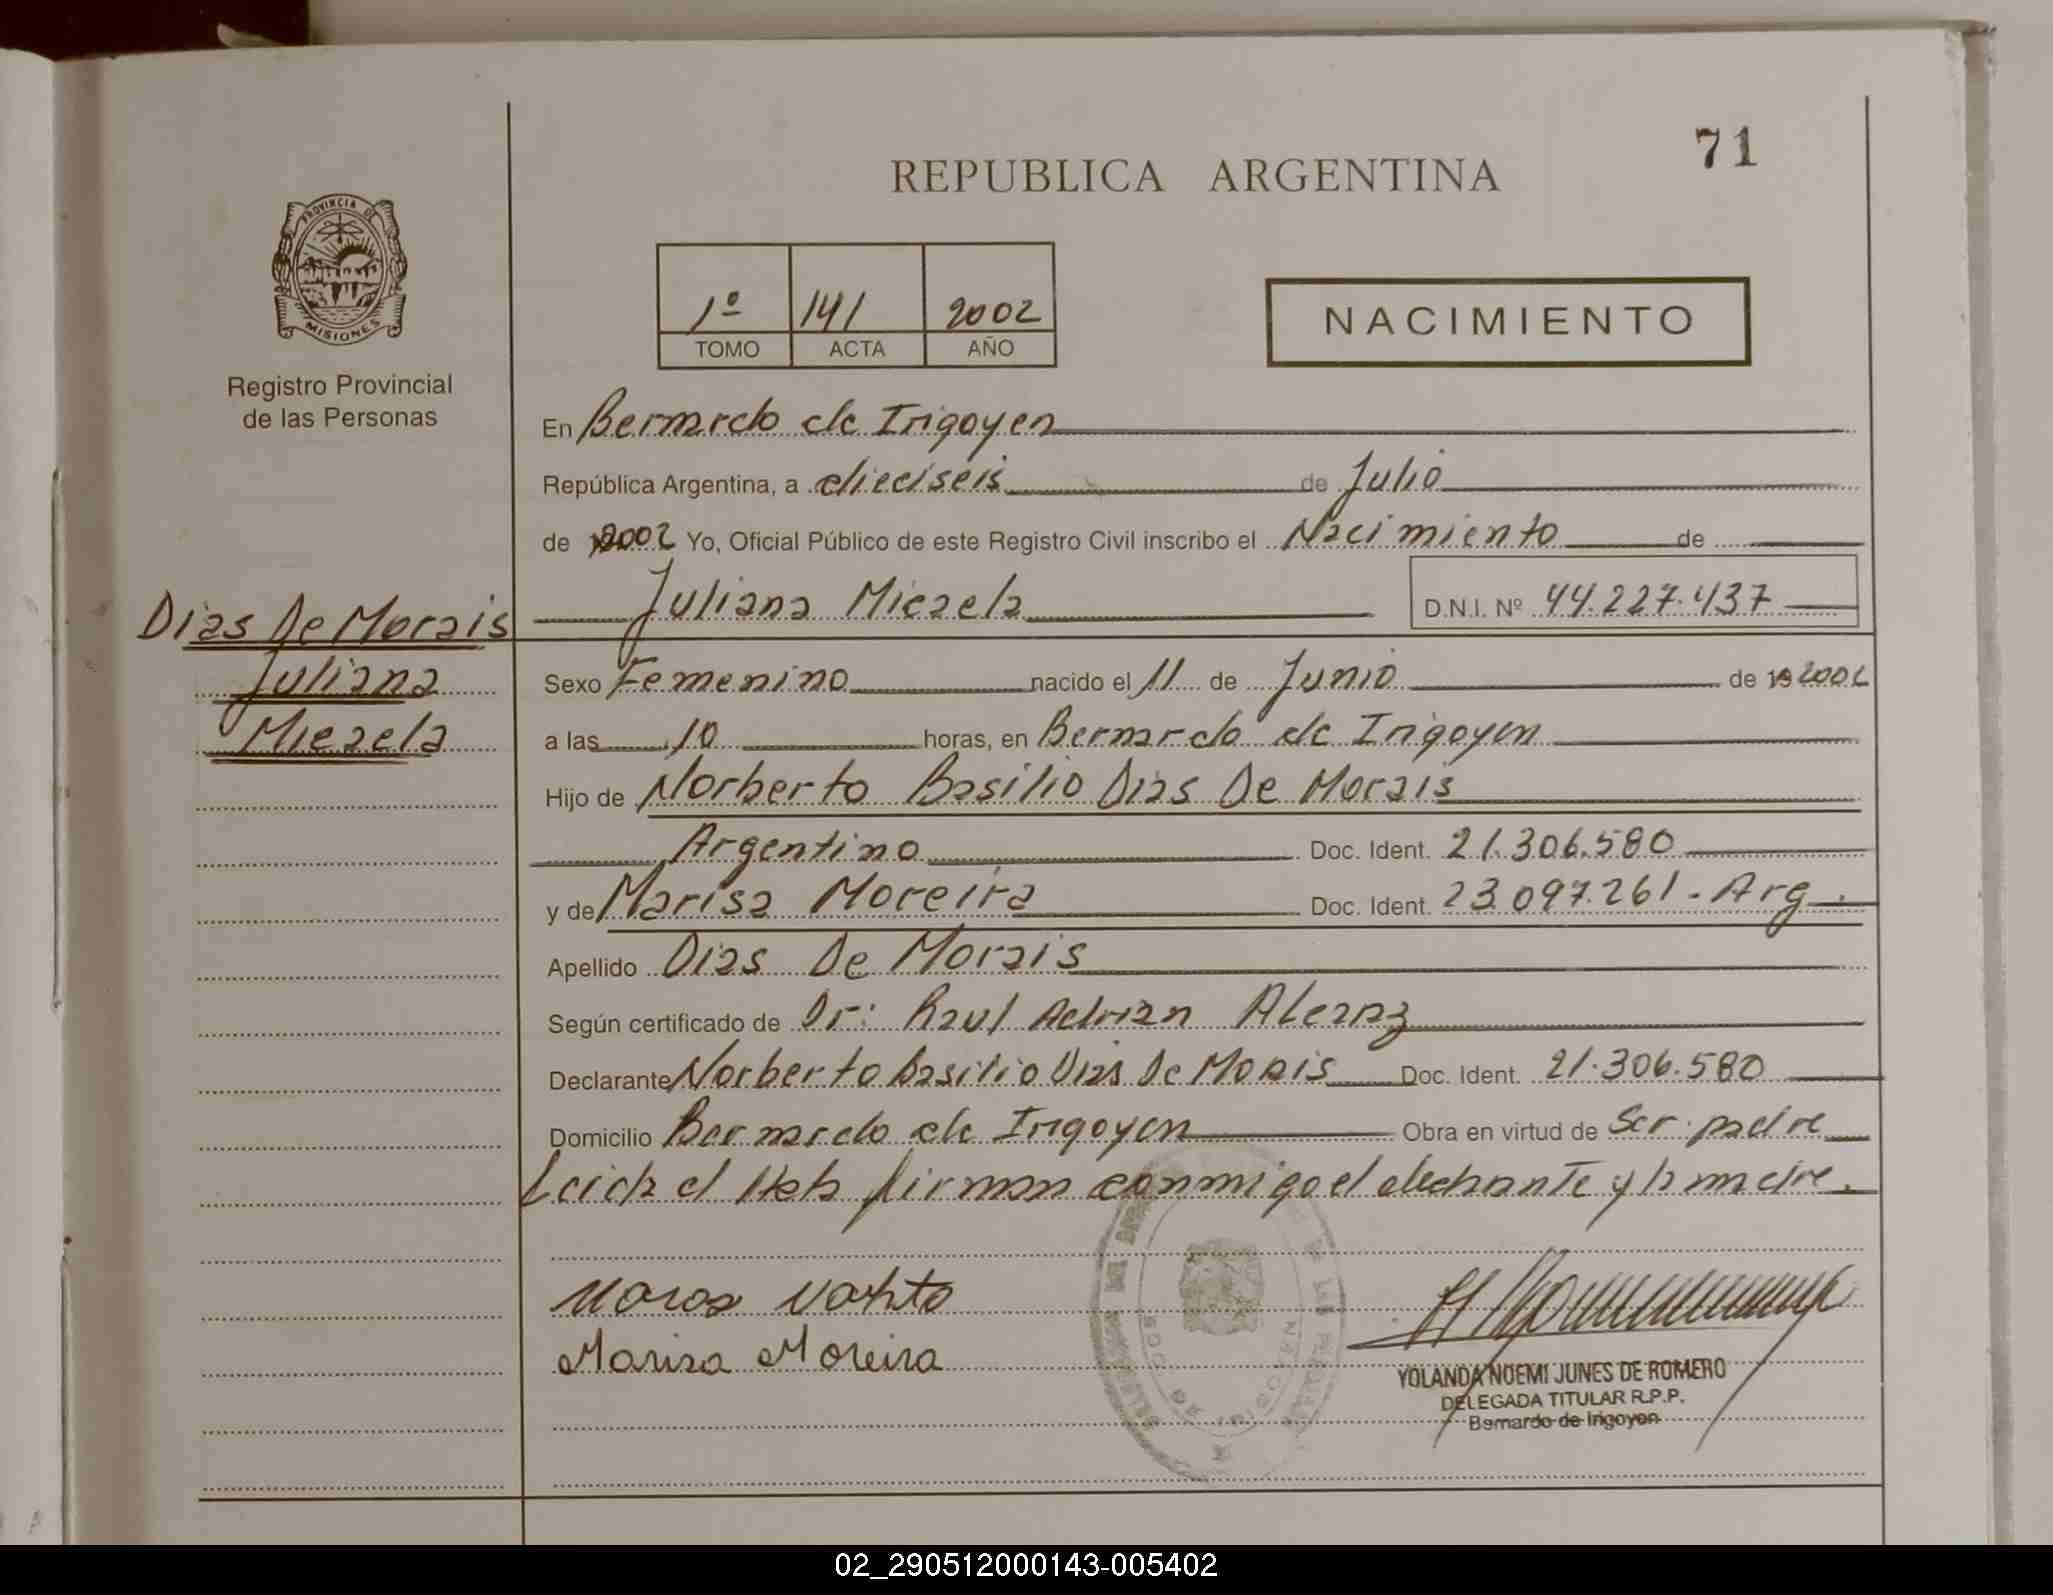 71
REPUBLICA ARGENTINA
PROVINCIA DE
MISIONES
Registro Provincial
de las Personas
1º 141 2002
TOMO ACTA AÑO
NACIMIENTO
En Bernardo de Irigoyen
República Argentina, a dieciseis de Julio
de 2002 Yo, Oficial Público de este Registro Civil inscribo el Nacimiento de
Juliana Micaela D.N.I. Nº 44.227.437
Dias De Morais
Juliana
Micaela
Sexo Femenino nacido el 11 de Junio de 19 2002
a las 10 horas, en Bernardo de Irigoyen
Hijo de Norberto Basilio Dias De Morais
Argentino Doc. Ident. 21.306.580
y de Marisa Moreira Doc. Ident. 23.097.261 - Arg.
Apellido Dias De Morais
Según certificado de Dr: Raul Adrian Alcaraz
Declarante Norberto Basilio Dias De Morais Doc. Ident. 21.306.580
Domicilio Bernardo de Irigoyen Obra en virtud de Ser padre
Leida el Acta firman conmigo el declarante y la madre.
Marisa Moreira
YOLANDA NOEMI JUNES DE ROMERO
DELEGADA TITULAR R.P.P.
Bernardo de Irigoyen
02_290512000143-005402